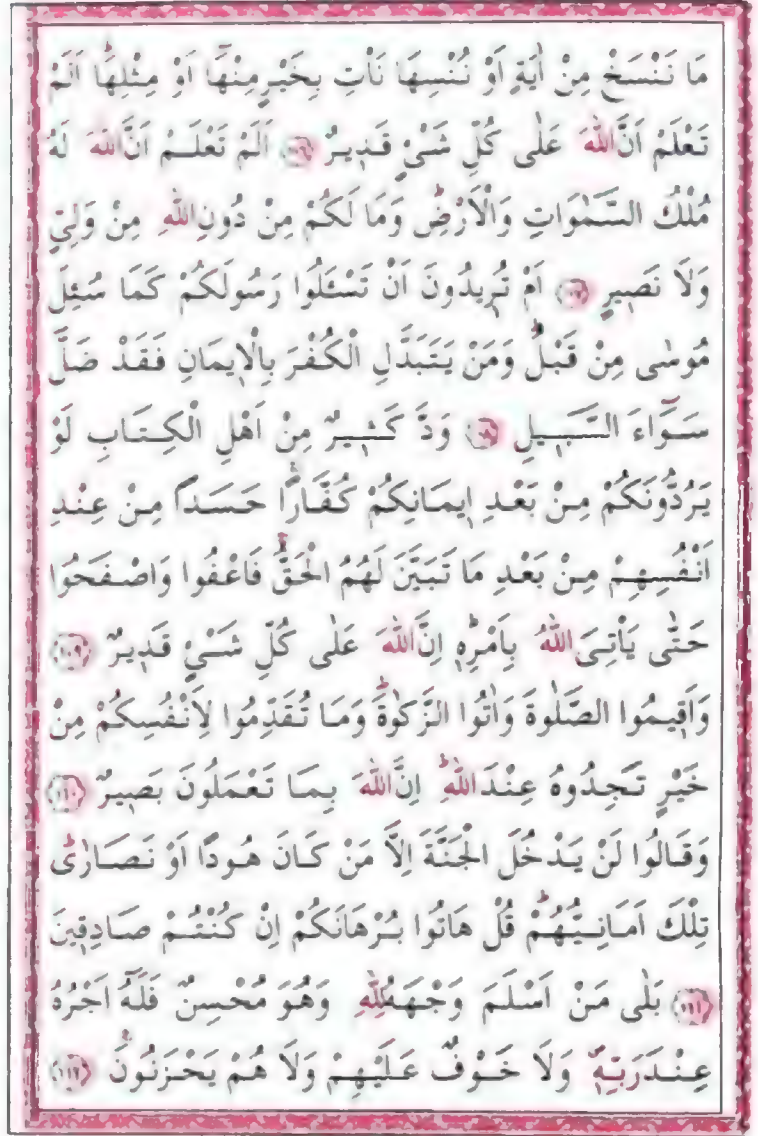 مَا نَنْسَخْ مِنْ اٰيَةٍ اَوْ نُنْسِهَا نَأْتِ بِخَيْرٍ مِنْهَٓا اَوْ مِثْلِهَاۜ اَلَمْ
تَعْلَمْ اَنَّ اللّٰهَ عَلٰى كُلِّ شَيْءٍ قَد۪يرٌ ﴿١٠٦﴾ اَلَمْ تَعْلَمْ اَنَّ اللّٰهَ لَهُ
مُلْكُ السَّمٰوَاتِ وَالْاَرْضِۜ وَمَا لَكُمْ مِنْ دُونِ اللّٰهِ مِنْ وَلِيٍّ
وَلَا نَص۪يرٍ ﴿١٠٧﴾ اَمْ تُر۪يدُونَ اَنْ تَسْـَٔلُوا رَسُولَكُمْ كَمَا سُئِلَ
مُوسٰى مِنْ قَبْلُۜ وَمَنْ يَتَبَدَّلِ الْكُفْرَ بِالْا۪يمَانِ فَقَدْ ضَلَّ
سَوَٓاءَ السَّب۪يلِ ﴿١٠٨﴾ وَدَّ كَث۪يرٌ مِنْ اَهْلِ الْكِتَابِ لَوْ
يَرُدُّونَكُمْ مِنْ بَعْدِ ا۪يمَانِكُمْ كُفَّارًاۚ حَسَدًا مِنْ عِنْدِ
اَنْفُسِهِمْ مِنْ بَعْدِ مَا تَبَيَّنَ لَهُمُ الْحَقُّۚ فَاعْفُوا وَاصْفَحُوا
حَتّٰى يَأْتِيَ اللّٰهُ بِاَمْرِه۪ۜ اِنَّ اللّٰهَ عَلٰى كُلِّ شَيْءٍ قَد۪يرٌ ﴿١٠٩﴾
وَاَق۪يمُوا الصَّلٰوةَ وَاٰتُوا الزَّكٰوةَۜ وَمَا تُقَدِّمُوا لِاَنْفُسِكُمْ مِنْ
خَيْرٍ تَجِدُوهُ عِنْدَ اللّٰهِۜ اِنَّ اللّٰهَ بِمَا تَعْمَلُونَ بَص۪يرٌ ﴿١١٠﴾
وَقَالُوا لَنْ يَدْخُلَ الْجَنَّةَ اِلَّا مَنْ كَانَ هُودًا اَوْ نَصَارٰىۜ
تِلْكَ اَمَانِيُّهُمْۜ قُلْ هَاتُوا بُرْهَانَكُمْ اِنْ كُنْتُمْ صَادِق۪ينَ
﴿١١١﴾ بَلٰى مَنْ اَسْلَمَ وَجْهَهُ لِلّٰهِ وَهُوَ مُحْسِنٌ فَلَهُٓ اَجْرُهُ
عِنْدَ رَبِّه۪ۖ وَلَا خَوْفٌ عَلَيْهِمْ وَلَا هُمْ يَحْزَنُونَ۟ ﴿١١٢﴾